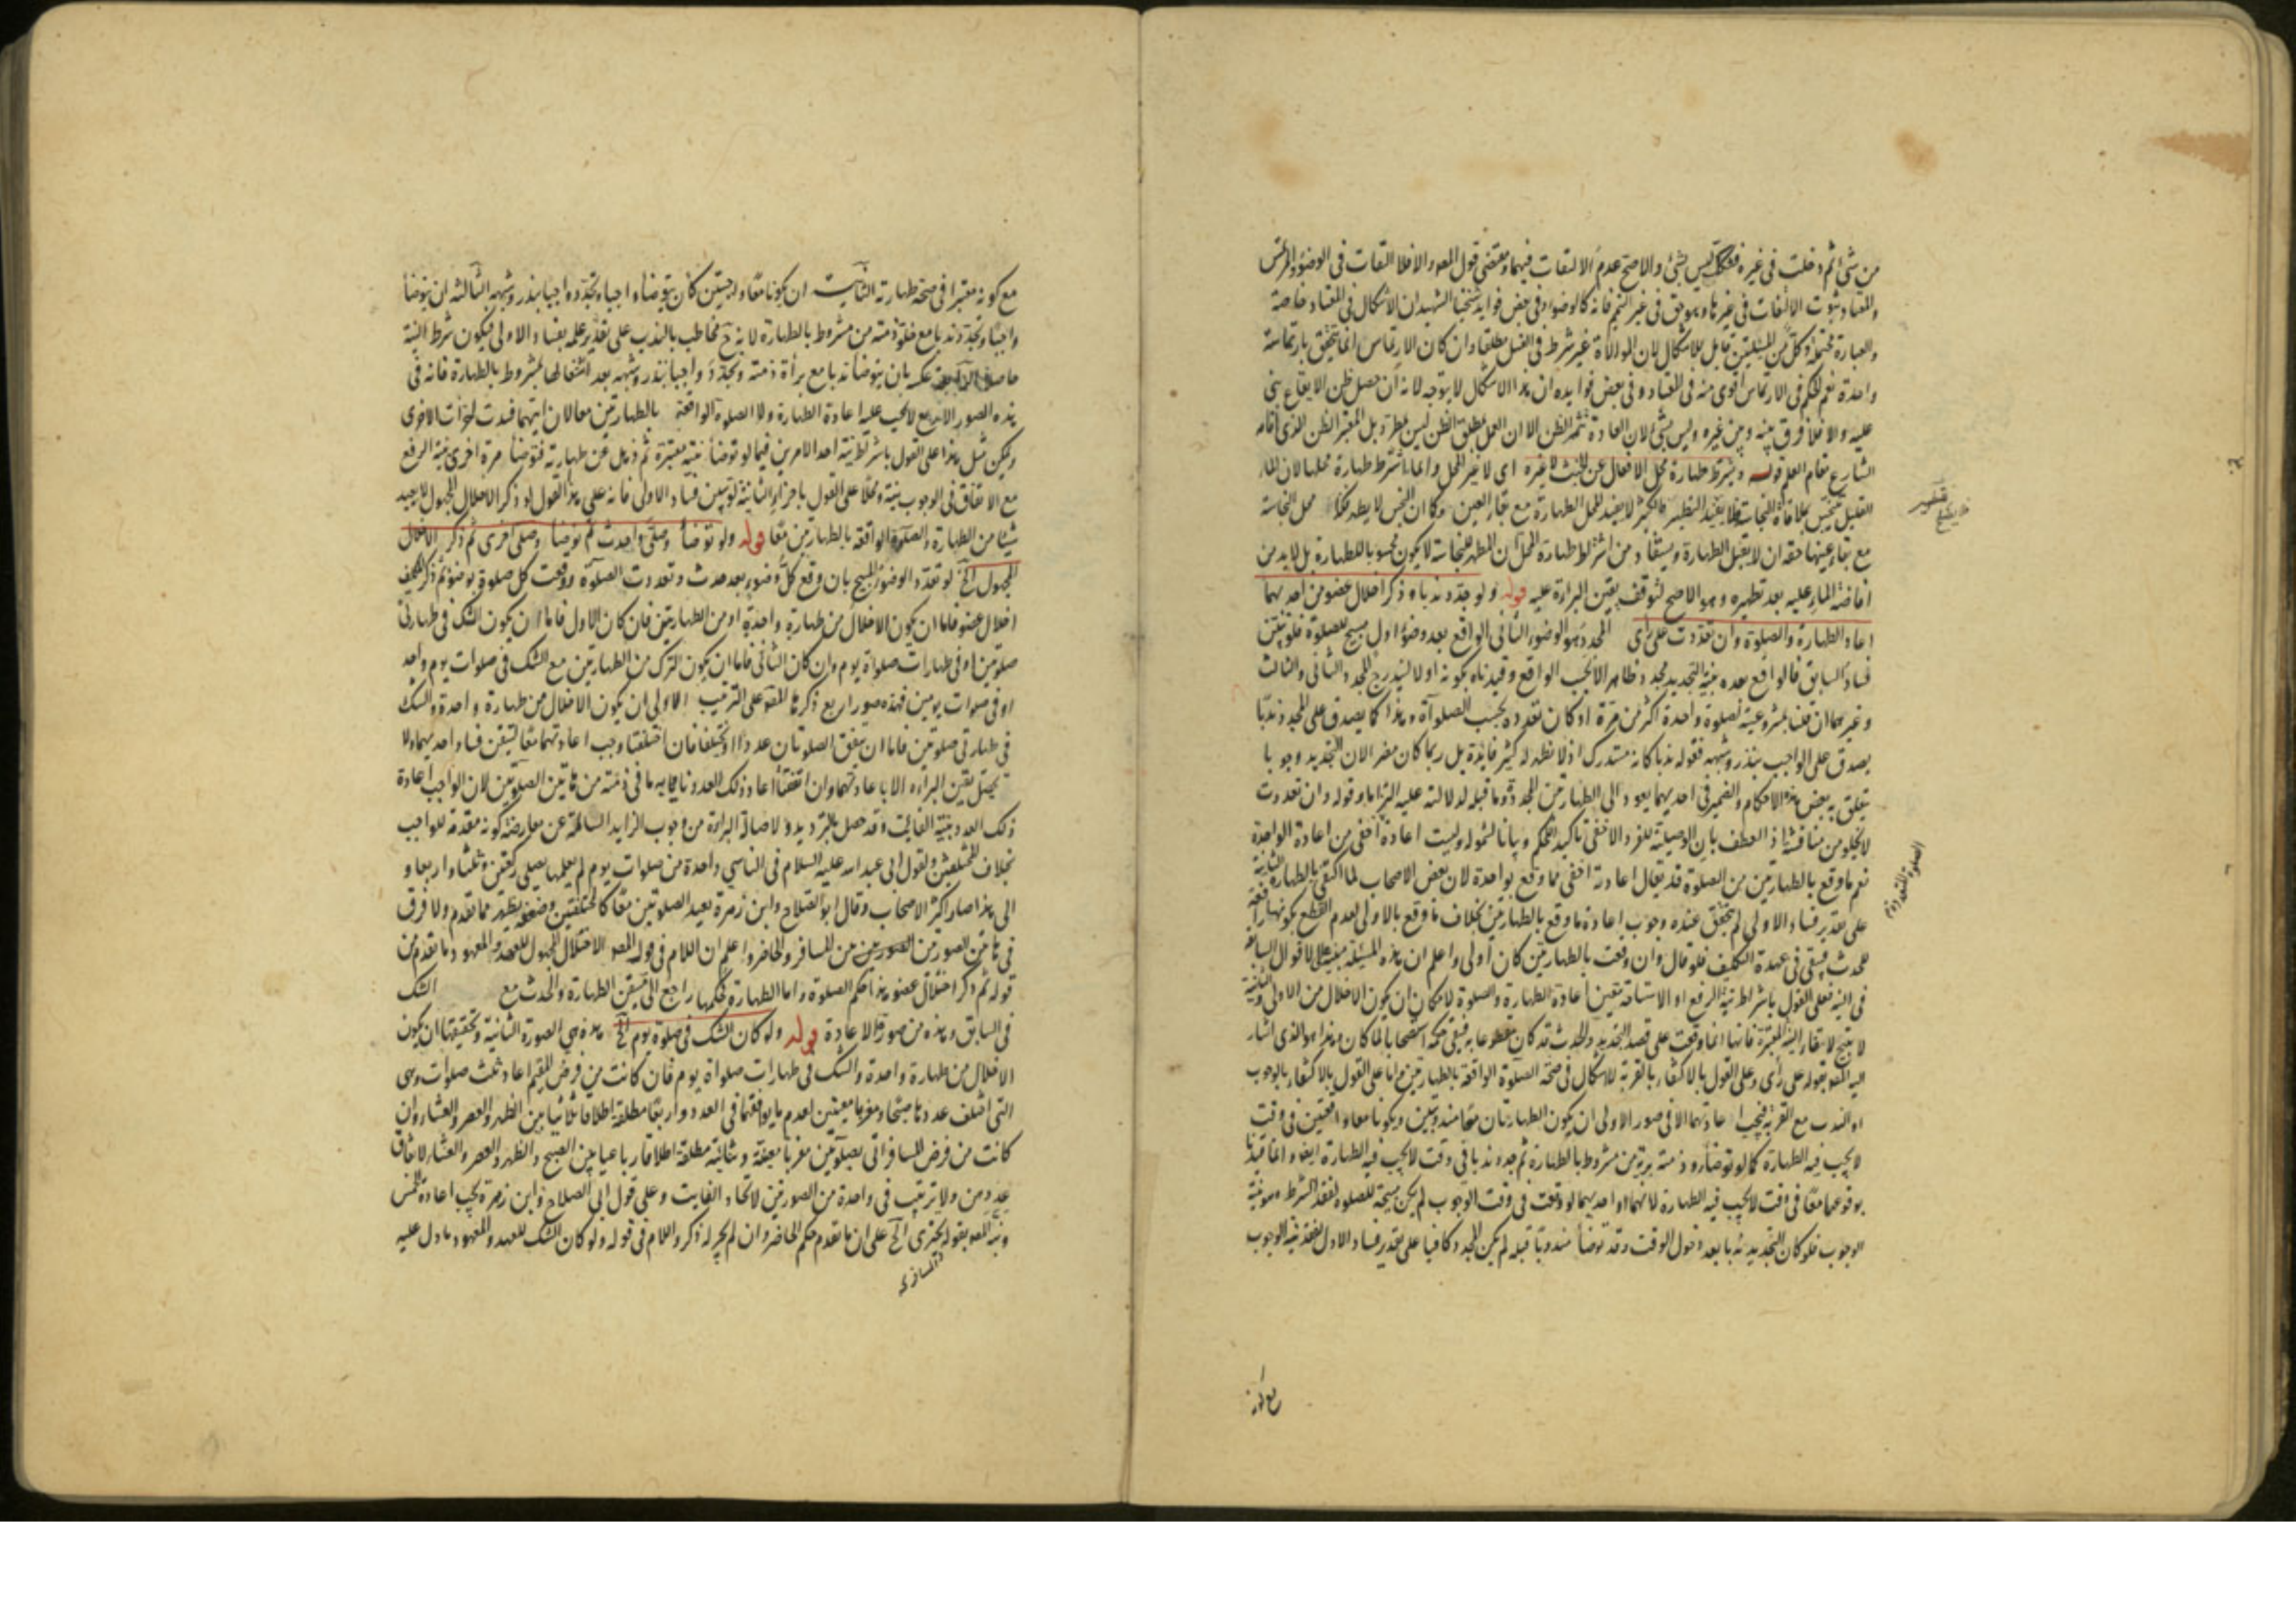 من شئ ثم دخلت في غيره فشكك ليس بشئ والاصح عدم الالتفات فيهما ومقتضى قول المصه والا فلا التفات في الوضوء والمرتمس
والمعتاد ثبوت الالتفات في غيرها وهو حق في غير التيمم فانه كالوضوء وفي بعض فوايد شيخنا الشهيد ان الاشكال في المعتاد خاصة
والعبارة محتملة وكل من المسئلتين قابل للاشكال لان الموالاة غير شرط في الغسل مطلقا وان كان الارتماس انما يتحقق بارتماسة
واحدة نعم الحكم في الارتماس اقوى منه في المعتاد وفي بعض فوايده ان هذا الاشكال لا يتوجه لانه ان حصل ظن الايقاع بنى
عليه والا فلا فرق بينه وبين غيره وليس بشئ لان العادة تثمر الظن الا ان العمل بمطلق الظن ليس بمطرد بل المعتبر الظن الذي اقامه
الشارع مقام العلم قوله ويشترط طهارة محل الافعال عن الخبث لا غيره اي لا غير المحل وانما اشترط طهارة محلها لان الماء
القليل ينجس بملاقاة النجاسة فلا يفيد التطهير والكثير لا يفيد المحل الطهارة مع بقاء العين وكان النجس لا يطهر فكذا محل النجاسة
مع بقاء عينها حقه ان لا يقبل الطهارة ويستفاد من اشتراط طهارة المحل ان المطهر للنجاسة لا يكون محسوبا للطهارة بل لا بد من
افاضة الماء عليه بعد تطهيره وهو الاصح لتوقف يقين البراءة عليه قوله ولو جدد ندبا وذكر اخلال عضو من احديهما
اعاد الطهارة والصلوة وان تعددت على رأي المجدد هو الوضوء الثاني الواقع بعد وضوء اول مبيح للصلوة فلو تيقن
فساد السابق فالواقع بعده بنية التجديد مجدد ظاهرا لا بحسب الواقع وقيدناه بكونه اولا ليندرج المجدد الثاني والثالث
وغيرهما ان قلنا بمشروعيته لصلوة واحدة اكثر من مرة او كان تعدده بحسب الصلوات وهذا كما يصدق على المجدد ندبا
يصدق على الواجب بنذر وشبهه فقوله ندبا كانه مستدرك اذ لا تظهر له كثير فايدة بل ربما كان مضرا لان التجديد وجوبا
يتعلق به بعض هذه الاحكام والضمير في احديهما يعود الى الطهارتين المجددة وما قبله لدلالته عليه التزاما وقوله وان تعددت
لا يخلو من مناقشة اذ العطف بان الوصلية للفرد الاخفى تاكيدا للحكم وبيانا لشموله وليست اعادة اخفى من اعادة الواحدة
نعم ما وقع بالطهارتين من الصلوة قد يقال اعادته اخفى مما وقع بواحدة لان بعض الاصحاب لما اكتفى بالطهارة الثانية
على تقدير فساد الاولى لم يتحقق عنده وجوب اعادة ما وقع بالطهارتين بخلاف ما وقع بالاولى لعدم القطع بكونها رافعة
للحدث فيبقى في عهدة التكليف فلو قال وان وقعت بالطهارتين كان اولى واعلم ان هذه المسئلة مبنية على الاقوال السالفة
في النية فعلى القول باشتراط نية الرفع او الاستباحة يتعين اعادة الطهارة والصلوة لامكان ان يكون الاخلال من الاولى والثانية
لا يبيح لانتفاء النية المعتبرة فانها انما وقعت على قصد التجديد والحدث قد كان مقطوعا به فيبقى حكمه استصحابا لما كان وهذا هو الذي اشار
اليه المصه بقوله على رأي وعلى القول بالاكتفاء بالقربة لا اشكال في صحة الصلوة الواقعة بالطهارتين واما على القول بالاكتفاء بالوجوب
او الندب مع القربة فيجب اعادتهما الا في صور الاولى ان يكون الطهارتان معا مندوبتين ويكونا معا واقعتين في وقت
لا يجب فيه الطهارة كما لو توضأ وذمته برية من مشروط بالطهارة ثم جدد ندبا في وقت لا يجب فيه الطهارة ايضا وانما قيدنا
بوقوعهما معا في وقت لا يجب فيه الطهارة لانهما او احديهما لو وقعت في وقت الوجوب لم يكن مبيحة للصلوة لفقد الشرط وهو نية
الوجوب فلو كان التجديد ندبا بعد دخول الوقت وقد توضأ مندوبا قبله لم يكن المجدد كافيا على تقدير فساد الاول لفقد نية الوجوب
مع كونه
مع كونه معتبرا في صحة طهارته الثانية ان يكونا معا واجبتين كان يتوضأ واجبا ويجدده واجبا بنذر وشبهه الثالثة ان يتوضأ
واجبا ويجدد ندبا مع خلو ذمته من مشروط بالطهارة لانه ح مخاطب بالندب على تقدير علمه بفساد الاولى فيكون شرط النية
حاصلا الرابعة عكسه بان يتوضأ ندبا مع براءة ذمته ويجدد واجبا بنذر وشبهه بعد اشتغالها بمشروط بالطهارة فانه في
هذه الصور الاربع لا يجب عليه اعادة الطهارة ولا الصلوة الواقعة بالطهارتين معا لان ايتهما فسدت اجزأت الاخرى
ويمكن مثل هذا على القول باشتراط نية احد الامرين فيما لو توضأ بنية معتبرة ثم ذهل عن طهارته فتوضأ مرة اخرى بنية الرفع
مع الاتفاق في الوجوب بنية ومحلا على القول باجزاء الثانية لو تبين فساد الاولى فانه على هذا القول لو ذكر الاخلال المجهول لا يعيد
شيئا من الطهارة والصلوة الواقعة بالطهارتين معا قوله ولو توضأ وصلى واحدث ثم توضأ وصلى اخرى ثم ذكر الاخلال
المجهول الخ لو تعدد الوضوء المبيح بان وقع كل وضوء بعد حدث وتعددت الصلوة ووقعت كل صلوة بوضوء ثم ذكر المكلف
اخلال عضو فاما ان يكون الاخلال من طهارة واحدة او من الطهارتين فان كان الاول فاما ان يكون الشك في طهارتي
صلوتين او في طهارات صلواة يوم وان كان الثاني فاما ان يكون الترك من الطهارتين مع الشك في صلوات يوم واحد
او في صلوات يومين فهذه صور اربع ذكرها المصه على الترتيب الاولى ان يكون الاخلال من طهارة واحدة والشك
في طهارتي صلوتين فاما ان يتفق الصلوتان عددا او تختلفا فان اختلفتا وجب اعادتهما معا لتيقن فساد احديهما ولا
يحصل يقين البراءة الا باعادتهما وان اتفقتا اعاد ذلك العدد ناويا به ما في ذمته من هاتين الصلوتين لان الواجب اعادة
ذلك العدد بنية الفائت وقد حصل بالترديد ولاصالة البراءة من وجوب الزايد السالمة عن معارضة كونه مقدمة للواجب
بخلاف المختلفتين ولقول ابي عبد الله عليه السلام في الناسي واحدة من صلوات يوم لم يعلمها يصلي ركعتين وثلثا واربعا و
الى هذا صار اكثر الاصحاب وقال ابو الصلاح وابن زهرة يعيد الصلوتين معا كالمختلفتين وضعفه يظهر مما تقدم ولا فرق
في هاتين الصورتين من المسافر والحاضر واعلم ان اللام في قوله المصه الاختلال المجهول للعهد والمعهود ما تقدم من
قوله ثم ذكر اختلال عضو هذا حكم الصلوة واما الطهارة فحكمها راجع الى تيقن الطهارة والحدث مع الشك
في السابق وهذه من صور الاعادة قوله ولو كان الشك في صلوة يوم الخ هذه هي الصورة الثانية وتحقيقها ان يكون
الاخلال من طهارة واحدة والشك في طهارات صلواة يوم فان كانت من فرض المقيم اعاد ثلث صلوات وهي
التي اختلف عددها صبحا ومغربا معينتين لعدم ما يوافقهما في العدد واربعا مطلقة اطلاقا ثلاثيا بين الظهر والعصر والعشاء وان
كانت من فرض المسافر اتى بصلوتين مغربا معينة وثنائية مطلقة اطلاقا رباعيا بين الصبح والظهر والعصر والعشاء لاتفاق
عددهن ولا ترتيب في واحدة من الصورتين لاتحاد الفايت وعلى قول ابي الصلاح وابن زهرة يجب اعادة الخمس
ونبه المصه بقوله يجتزى الخ على ان ما تقدم حكم الحاضر وان لم يجر له ذكر واللام في قوله ولو كان الشك للعهد والمعهود ما دل عليه